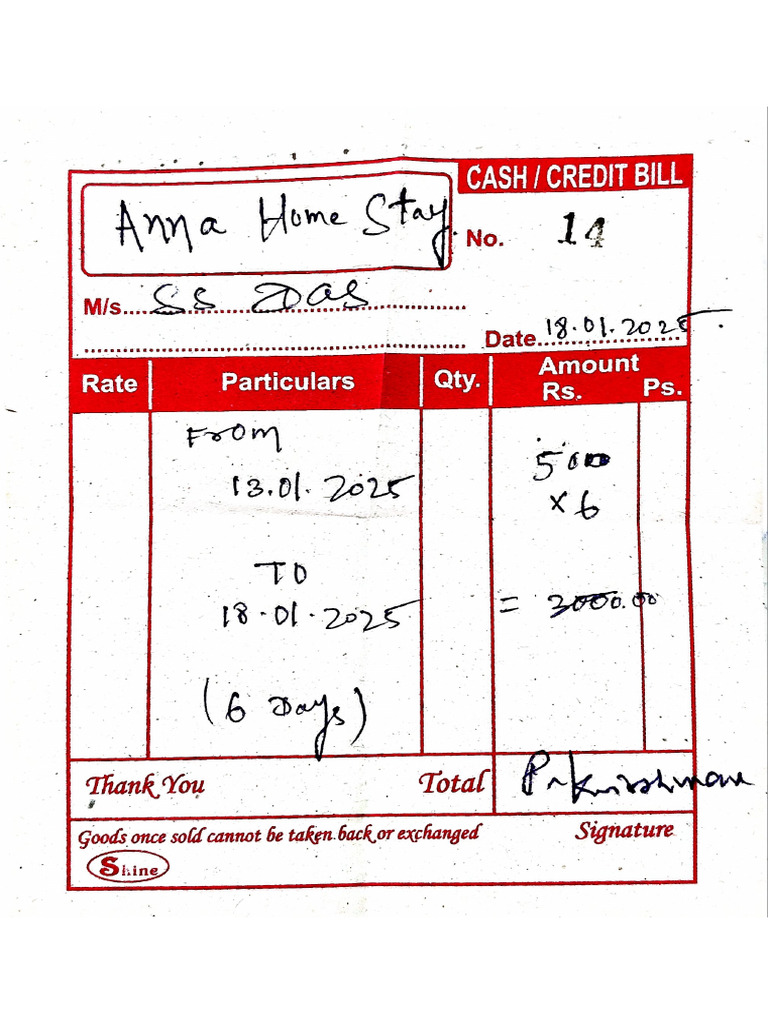 CASH / CREDIT BILL
Anna Home Stay.
No. 14
M/s. SS Das
Date 18.01.2025.
Rate Particulars Qty. Amount Rs. Ps.
From
13.01.2025
500
x 6
To
18.01.2025
= 3000.00
(6 Days)
Thank You Total
Goods once sold cannot be taken back or exchanged Signature
Shine